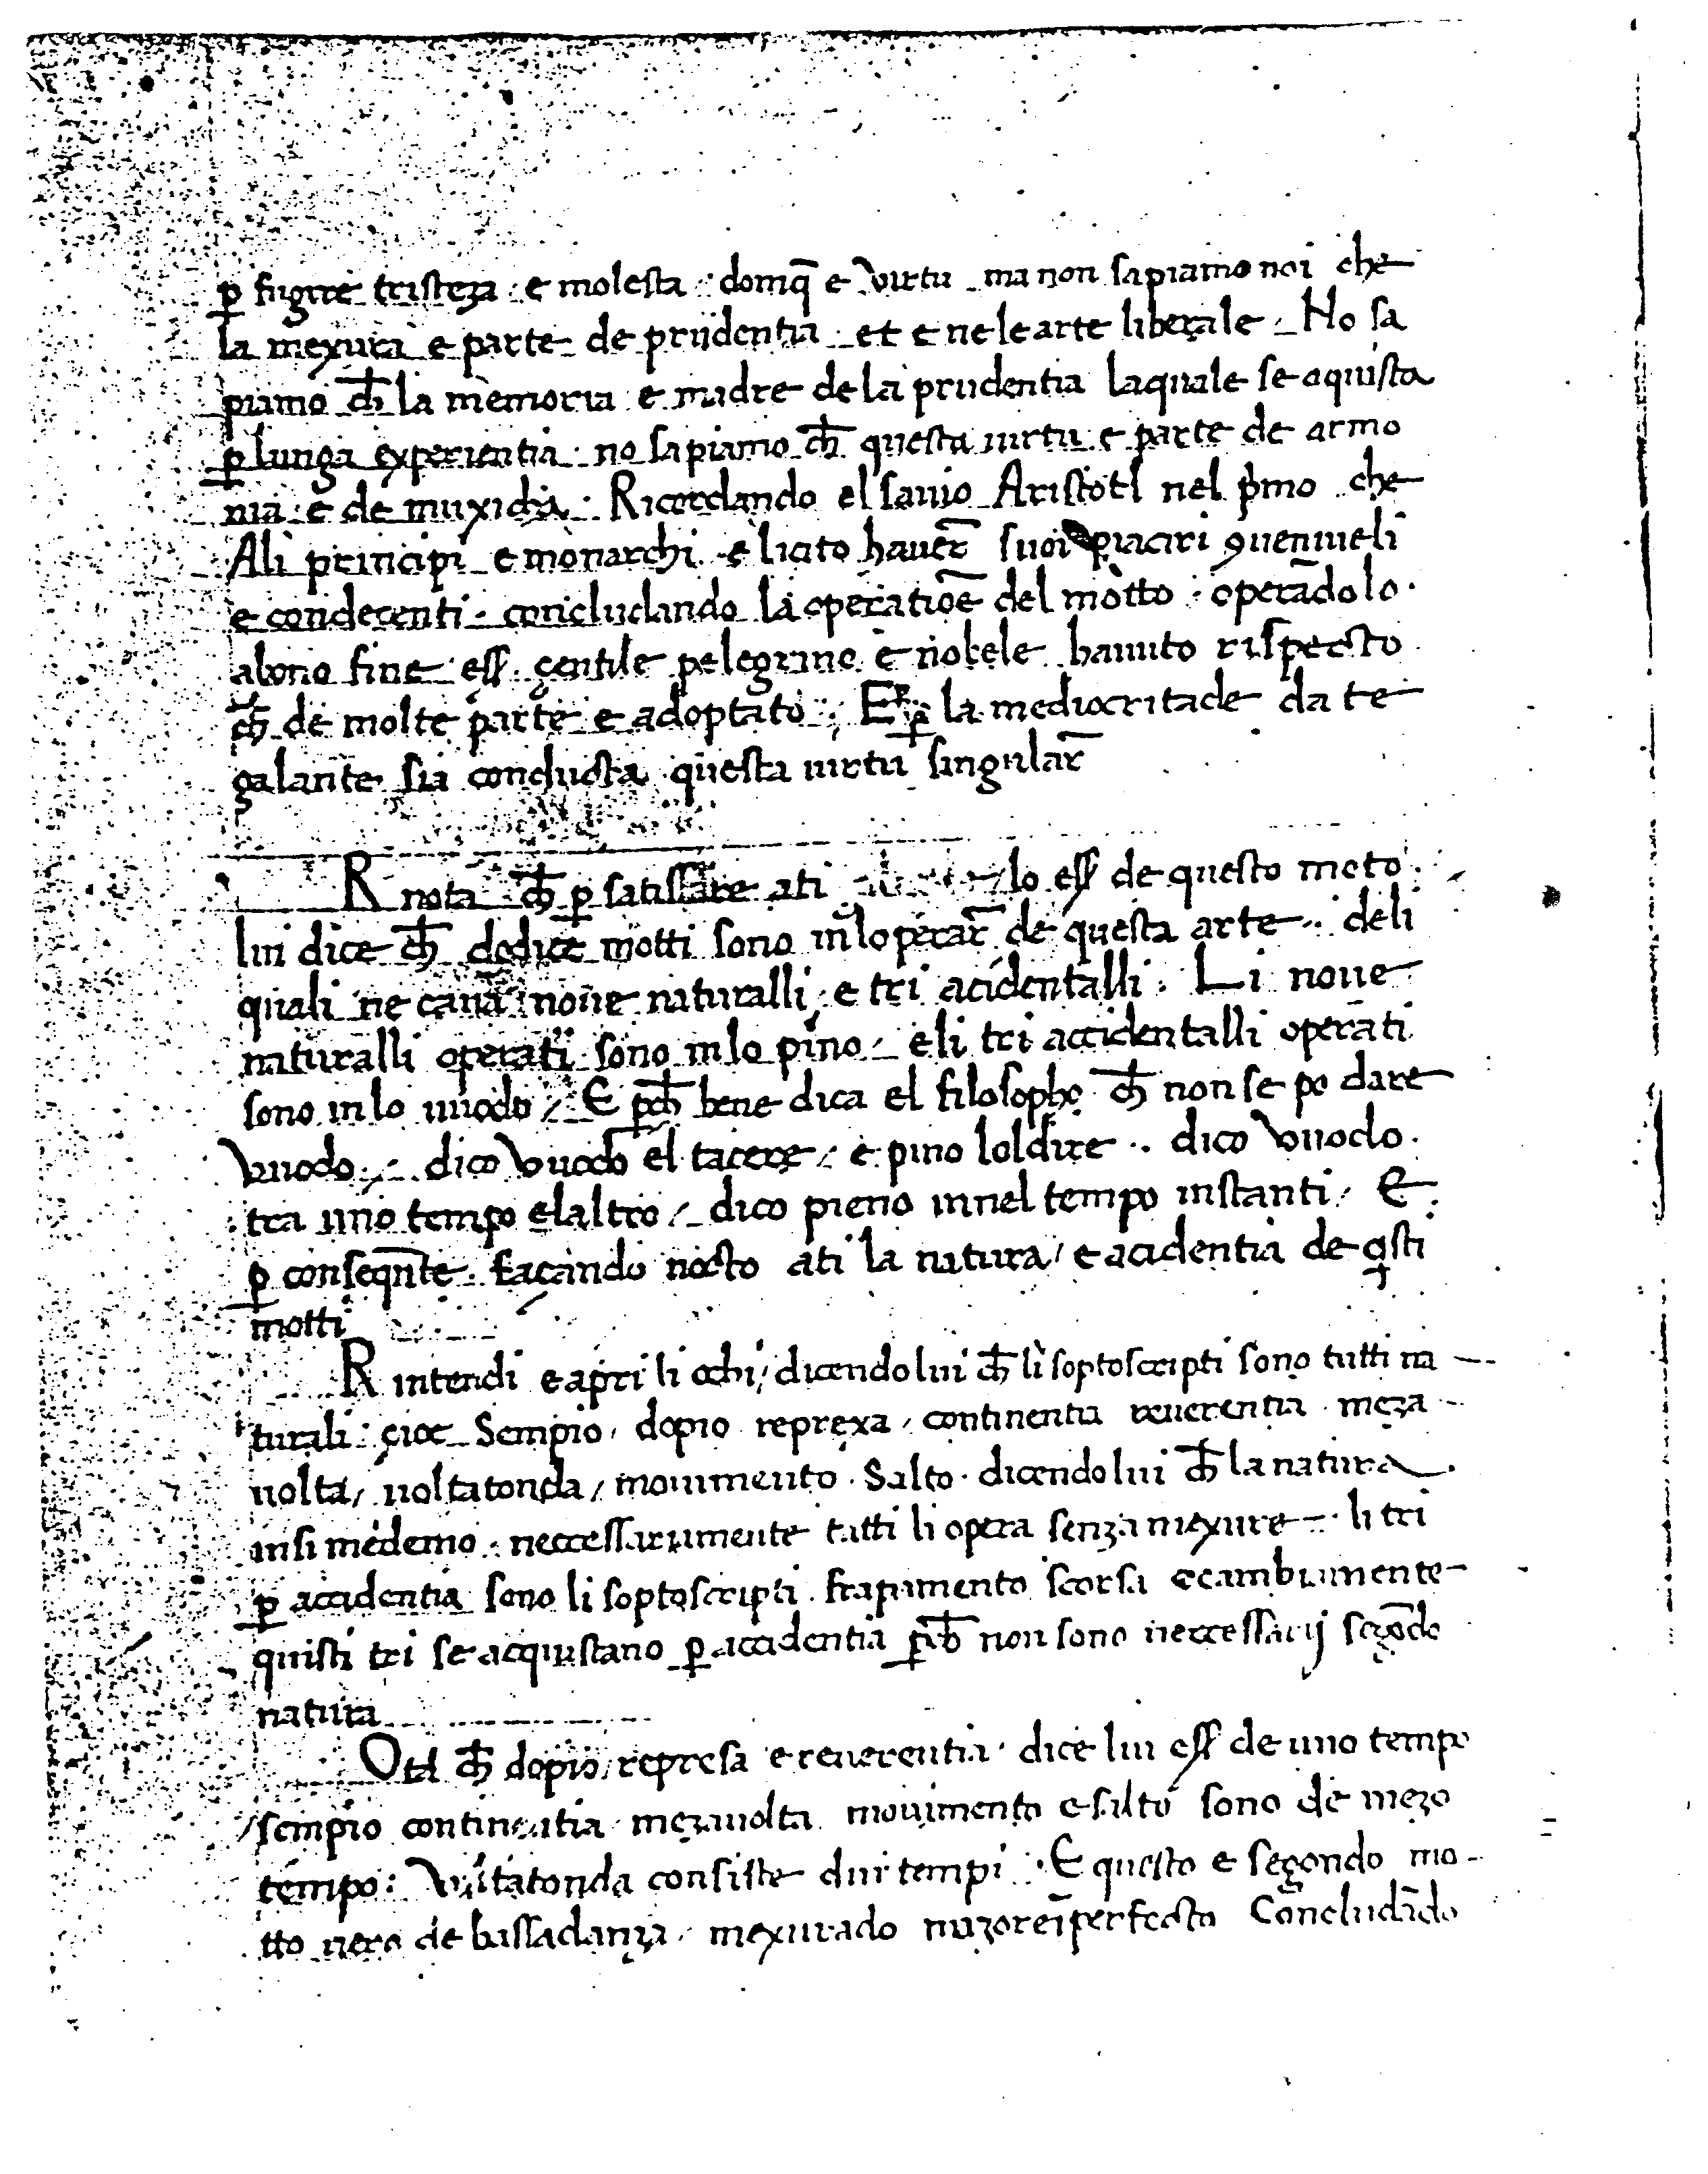 p̱ fugire tristeza e molesta domq̄ e virtu ma non sapiamo noi che
la mexura e parte de prudentia et e ne le arte liberale No sa
piamo ch̄ la memoria e madre de la prudentia laquale se aquista
p̱ lunga experientia no sapiamo ch̄ questa uirtu e parte de armo
nia e de muxicha Ricordando el sauio Aristotl nel pͥmo che
Ali principi e monarchi e licito hauer̄ suoi piaciri ꝯueniueli
e condecenti concludando la operatiōe del motto operādo lo
a bono fine eſſ. gentile pelegrino e nobele hauuto rispecto
ch̄ de molte parte e adoptato E p̱ la mediocritade da te
galante sia conducta questa uirtu singular̄
R nota ch̄ p̱ satisfare ati lo eſſ de questo moto
lui dice ch̄ dodice motti sono in loperar̄ de questa arte deli
quali ne caua noue naturalli e tri acidentalli Li noue
naturalli operati sono in lo pino e li tri accidentalli operati
sono in lo uuodo E p̱ch̄ bene dica el filosopho ch̄ non se po dare
vuodo dico vuodo el tacere e pino loldire dico vuodo
tra uno tempo e laltro dico pieno in nel tempo instanti E
p̱ conseqn̄te façando nocto ati la natura e acidentia de qsti
motti
R intendi e apri li ochi dicendo lui ch̄ li soptoscripti sono tutti na
turali çioe Sempio dopio reprexa continentia reuerentia meza
uolta uolta tonda mouimento Salto dicendo lui ch̄ la natura
in si medemo neccessariamente tutti li opera senza mexure li tri
p̱ accidentia sono li soptoscripti frapamento scorsa e cambiamente
quisti tri se acquistano p̱ accidentia p̱ch̄ non sono neccessarij segōdo
natura
ch̄ dopio represa e reuerentia dice lui eſſ de uno tempo
sempio continentia meza uolta mouimento e salto sono de mezo
tempo Vulta tonda consiste dui tempi E questo e segondo mo
tto uero de bassadanza mexurado mazore īperfecto Concludādo